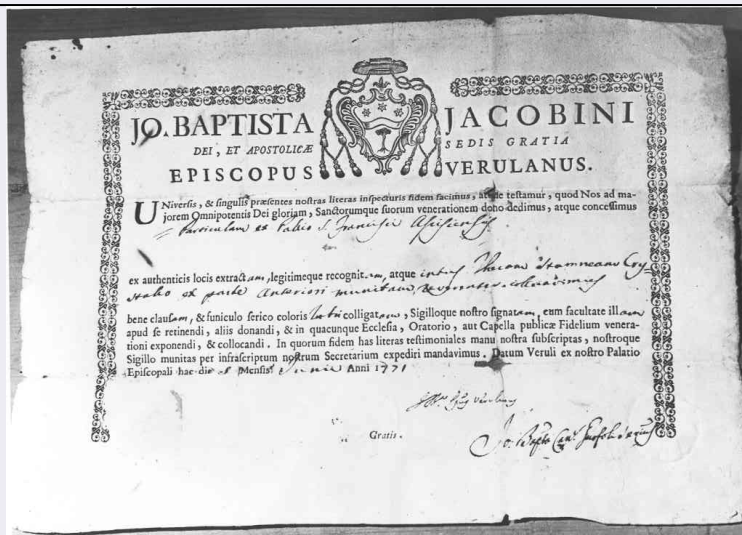 JO. BAPTISTA JACOBINI
DEI, ET APOSTOLICÆ SEDIS GRATIA
EPISCOPUS VERULANUS.
UNiversis, & singulis præsentes nostras literas inspecturis fidem facimus, atque testamur, quod Nos ad ma-
jorem Omnipotentis Dei gloriam, Sanctorumque suorum venerationem dono dedimus, atque concessimus
Particulam ex Palio S. Francisci Assisiensis
ex authenticis locis extractam, legitimeque recognitam, atque intus Thecam Stamneam Cry
stallo ex parte anteriori munitam reverenter collocavimus
bene clausam, & funiculo serico coloris rubri colligatam, Sigilloque nostro signatam, cum facultate illam
apud se retinendi, aliis donandi, & in quacunque Ecclesia, Oratorio, aut Capella publicæ Fidelium venera-
tioni exponendi, & collocandi. In quorum fidem has literas testimoniales manu nostra subscriptas, nostroque
Sigillo munitas per infrascriptum nostrum Secretarium expediri mandavimus. Datum Veruli ex nostro Palatio
Episcopali hac die Mensis Junii Anni 1771
Gratis.
Jo. Bapta Can.